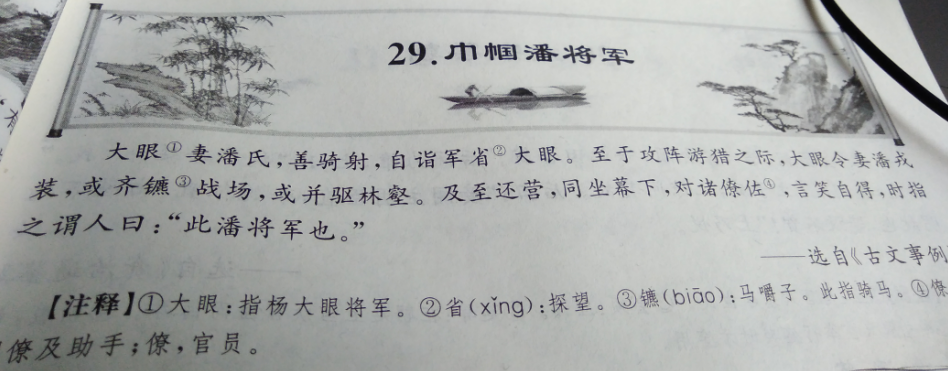 29.巾帼潘将军
大眼①妻潘氏,善骑射,自诣军省②大眼。至于攻阵游猎之际,大眼令妻潘戎
装,或齐镳③战场,或并驱林壑。及至还营,同坐幕下,对诸僚佐④,言笑自得,时指
之谓人曰:“此潘将军也。”
——选自《古文事例
【注释】①大眼:指杨大眼将军。②省(xǐng):探望。③镳(biāo):马嚼子。此指骑马。④僚
僚及助手;僚,官员。